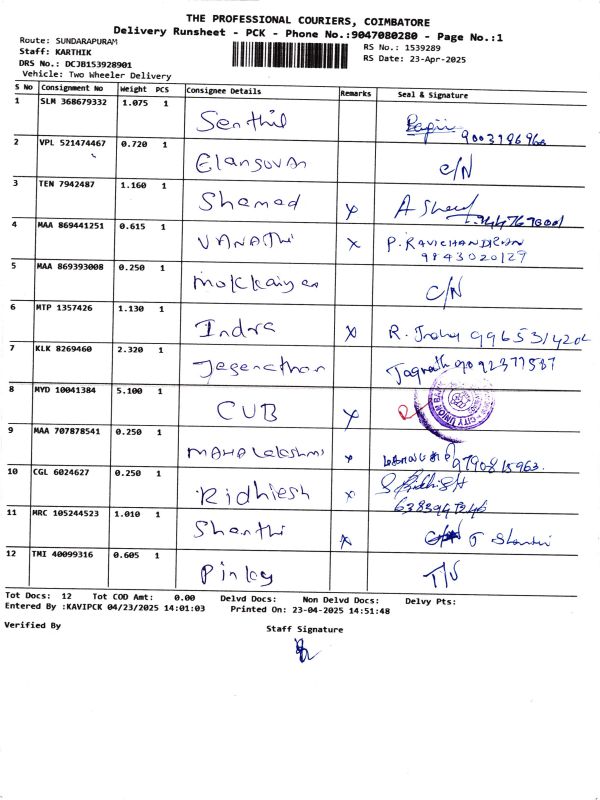 THE PROFESSIONAL COURIERS, COIMBATORE
Delivery Runsheet - PCK - Phone No.:9047080280 - Page No.:1
Route: SUNDARAPURAM
RS No.: 1539289
Staff: KARTHIK
RS Date: 23-Apr-2025
DRS No.: DCJB153928901
Vehicle: Two Wheeler Delivery
S No Consignment No Weight PCS Consignee Details Remarks Seal & Signature
1 SLM 368679332 1.075 1 Senthil
2 VPL 521474467 0.720 1 Elangovan C/N
3 TEN 7942487 1.160 1 Shamad x
4 MAA 869441251 0.615 1 VANAThi x P. RAVICHANDRAN
9843020129
5 MAA 869393008 0.250 1 Mokkaiyan C/N
6 MTP 1357426 1.130 1 Indra x R.
7 KLK 8269460 2.320 1 Jegenathan Jagnath
8 MYD 10041384 5.100 1 CUB x CITY UNION BANK
9 MAA 707878541 0.250 1 MAHA Lakshmi x
10 CGL 6024627 0.250 1 Ridhiesh x
11 MRC 105244523 1.010 1 Shanthi x
12 TMI 40099316 0.605 1
Tot Docs: 12 Tot COD Amt: 0.00 Delvd Docs: Non Delvd Docs: Delvy Pts:
Entered By :KAVIPCK 04/23/2025 14:01:03 Printed On: 23-04-2025 14:51:48
Verified By Staff Signature